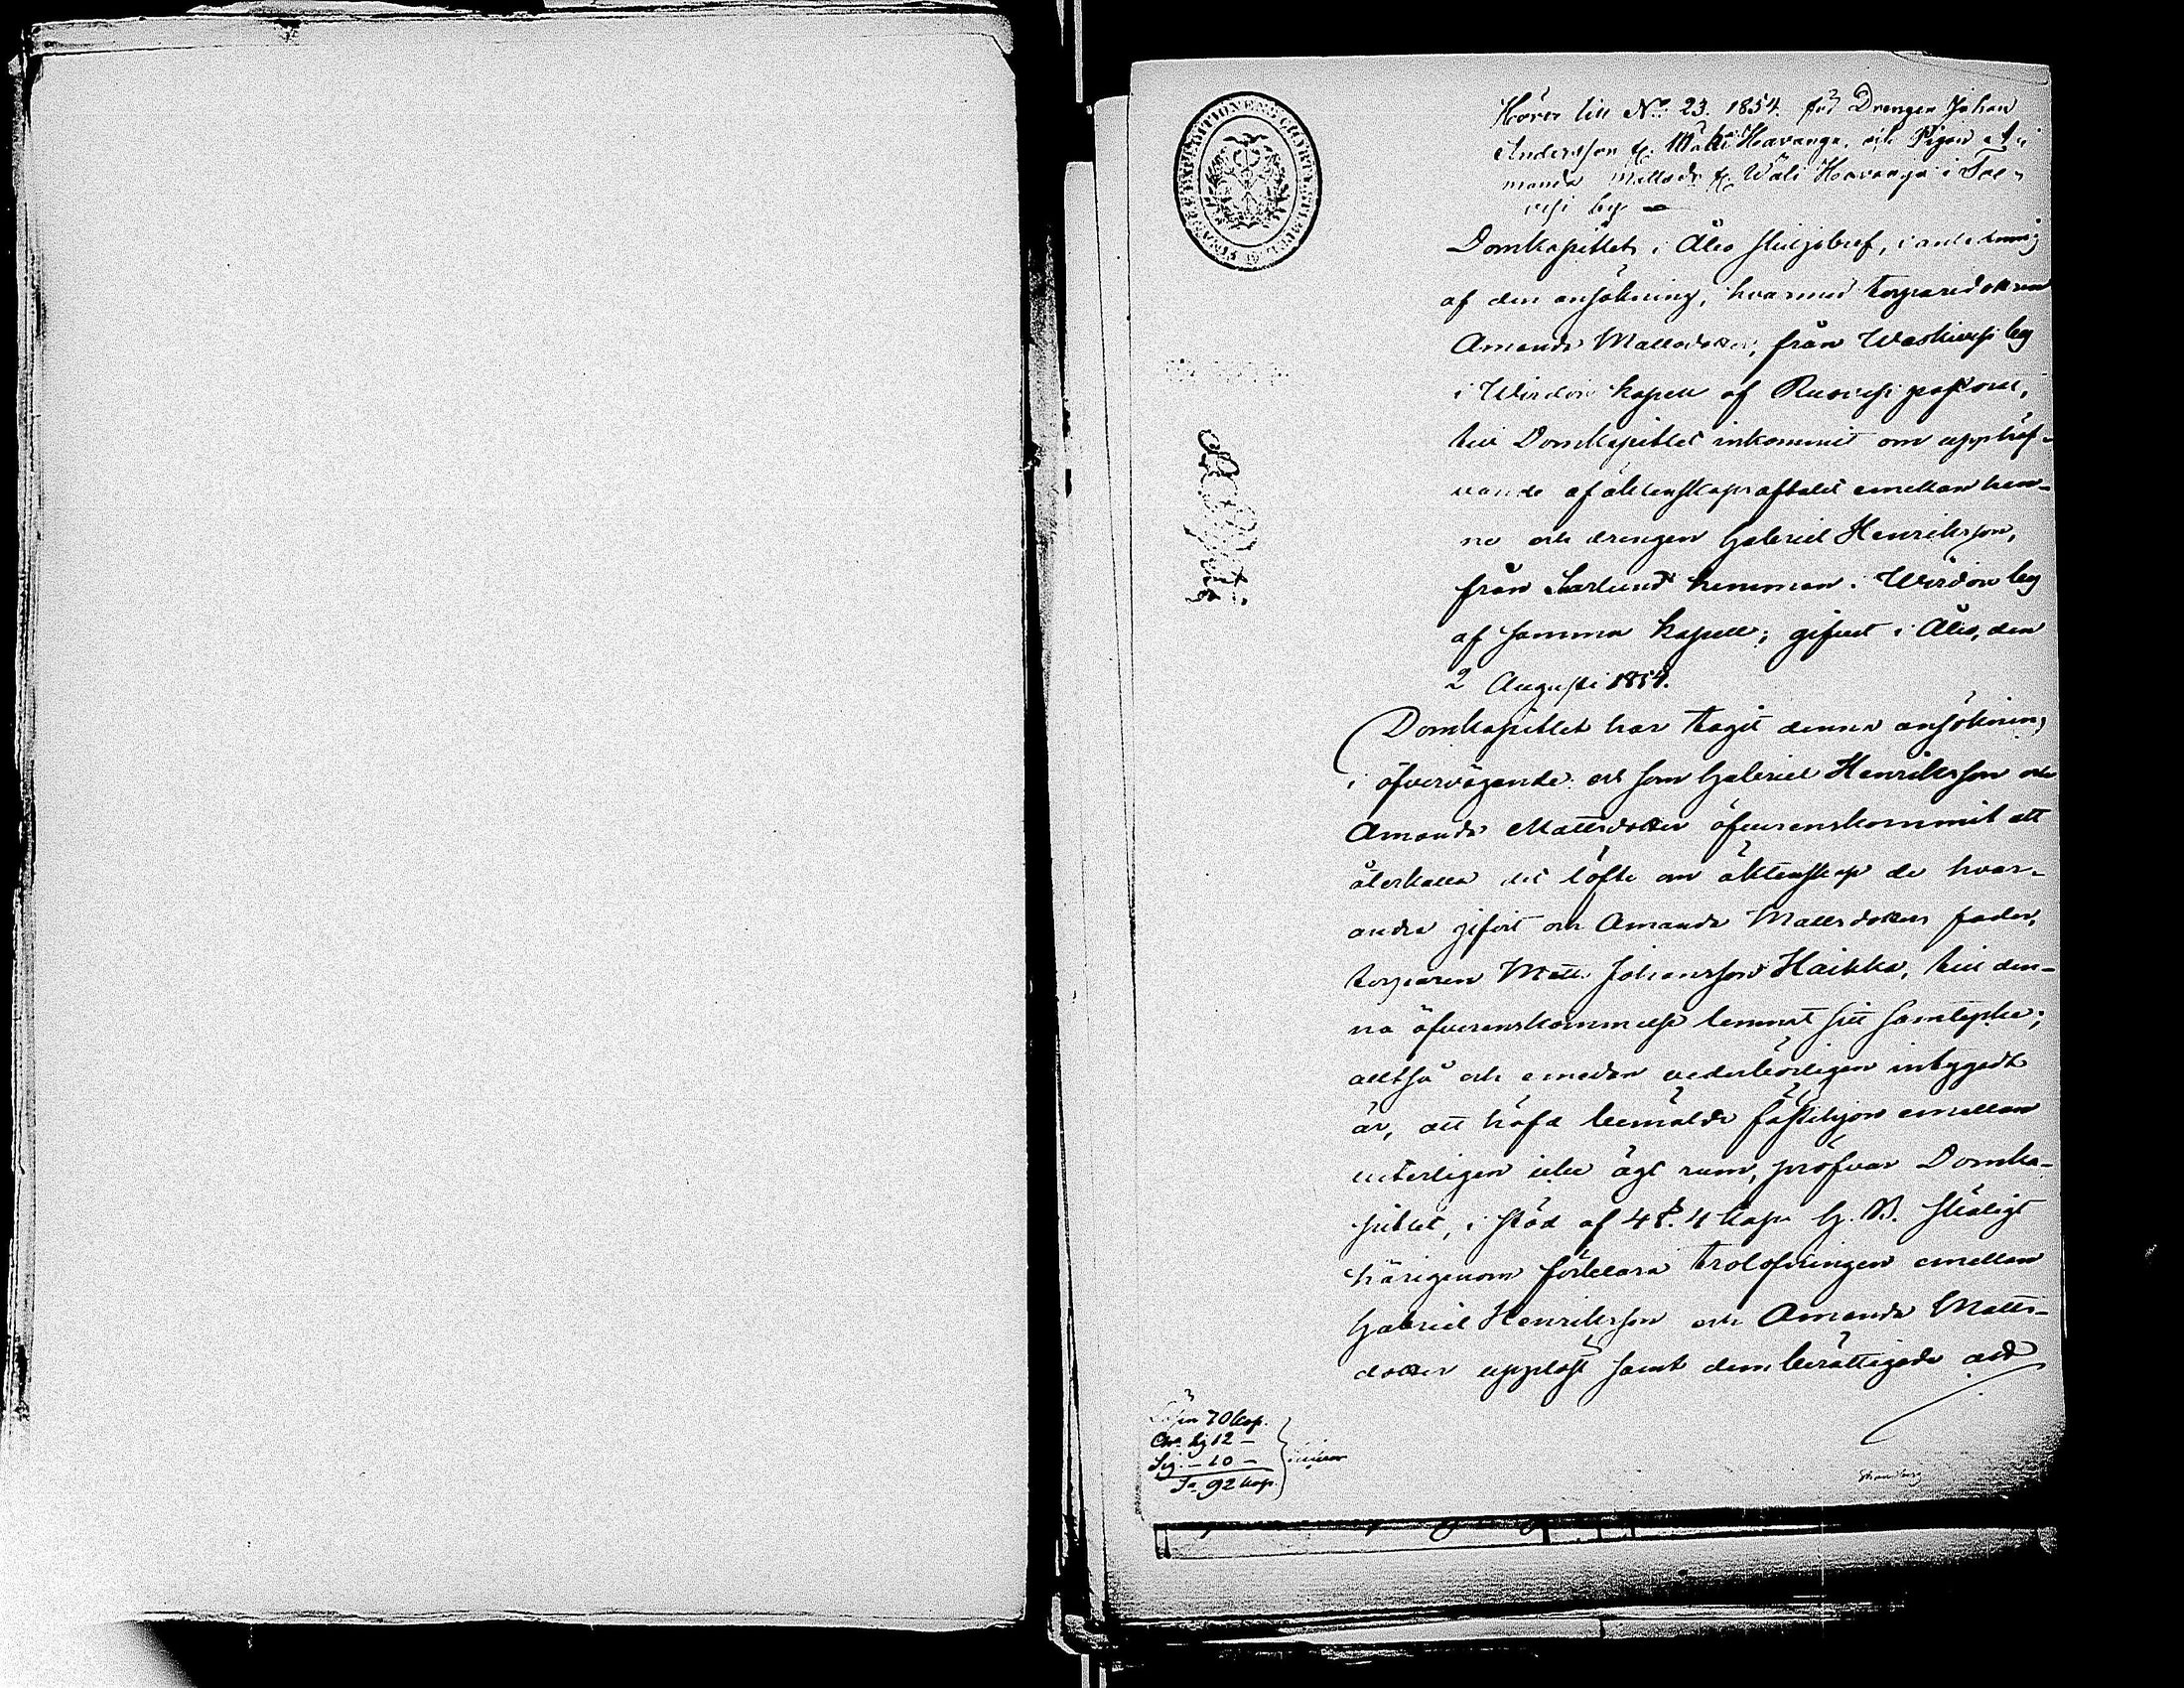 Hörer till No. 23. 1854. för Drengen Johan
Andersson fr. Mäki Havanga, och Pigan A-
manda Mattsdr fr. Wäli Havanga i
by
Domkapitlets i Åbo skiljobref, i anledning
af den ansökning, hvarmed torparedottren
Amanda Mattsdotter, från Waskivesi by
i Wirdois kapell af Ruovesi pastorat,
hos Domkapitlet inkommit om upphäf-
vande af äktenskapsaftalet emellan hen-
ne och drengen Gabriel Henriksson,
från Sarlund hemman i Wirdois by
af samma kapell; gifvet i Åbo, den
2 Augusti 1854.
Domkapitlet har tagit denna ansökning
i öfvervägande och som Gabriel Henriksson och
Amanda Mattsdotter öfverenskommit att
återkalla det löfte om äktenskap de hvar-
andra gifvit och Amanda Mattsdotters fader,
torparen Matts Johansson Haikka, till den-
na öfverenskommelse lemnat sitt samtycke;
alltså och emedan vederbörligen intygadt
är, att häfd bemälde fästehjon emellan
veterligen icke ägt rum, pröfvar Domka-
pitlet, i stöd af 4 §. 4 Kap. G. B. skäligt
härigenom förklara trolofningen emellan
Gabriel Henriksson och Amanda Matts-
dotter upplöst samt dem berättigade att
Lösen 70 kop.
Cha. Sig. 12 —
Sig. — 10 —
Sa 92 kop.